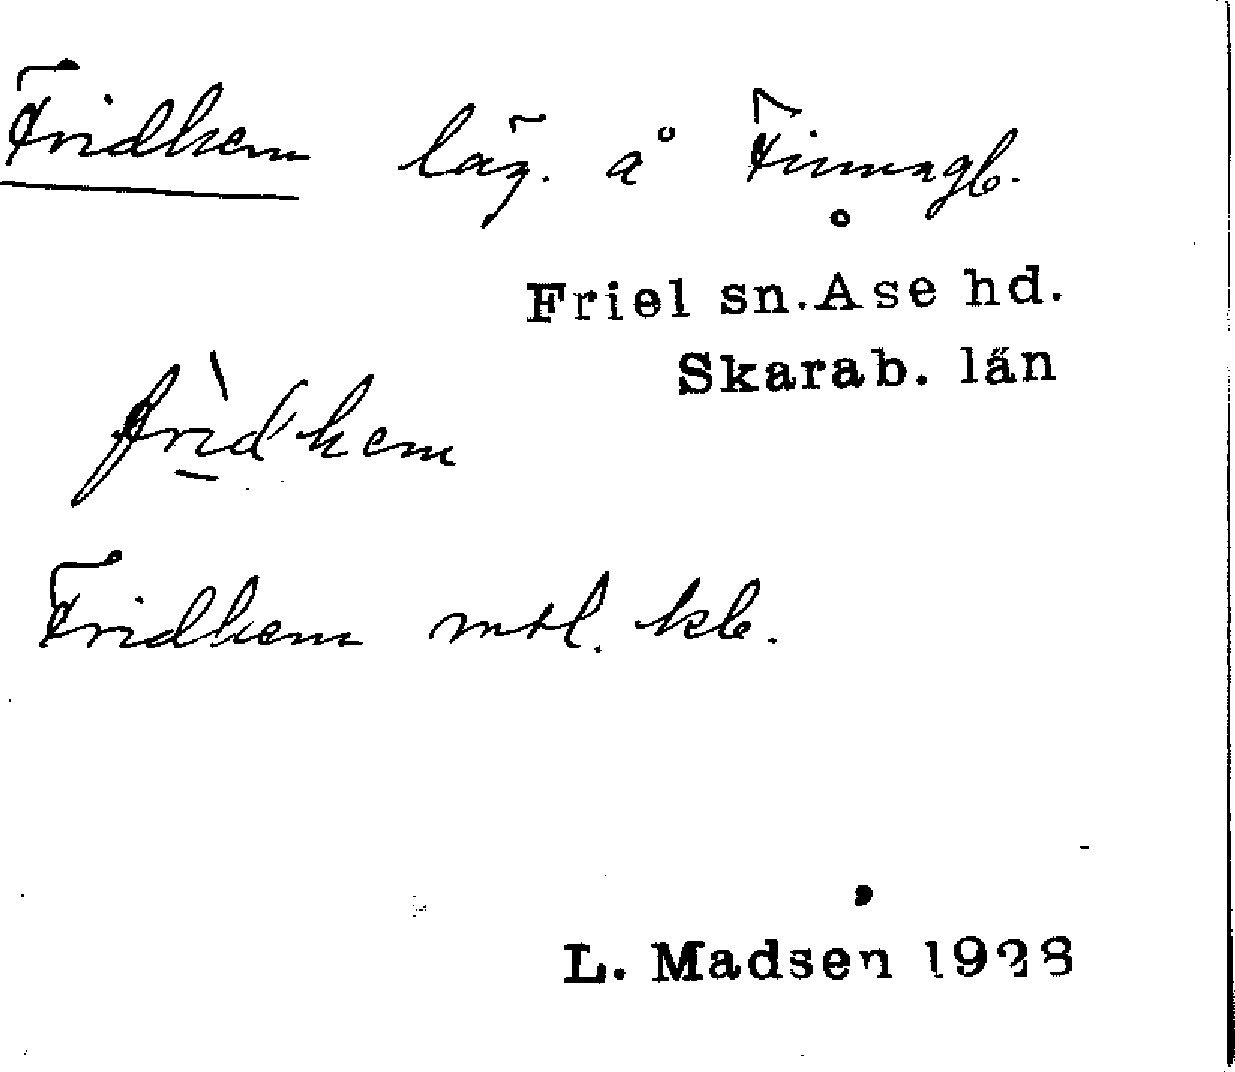 Fridhem läg. å Finnagb.
Friel sn. Åse hd.
Skarab. län
frìdhem
Fridhem mtl. kb.
L. Madsen 1928